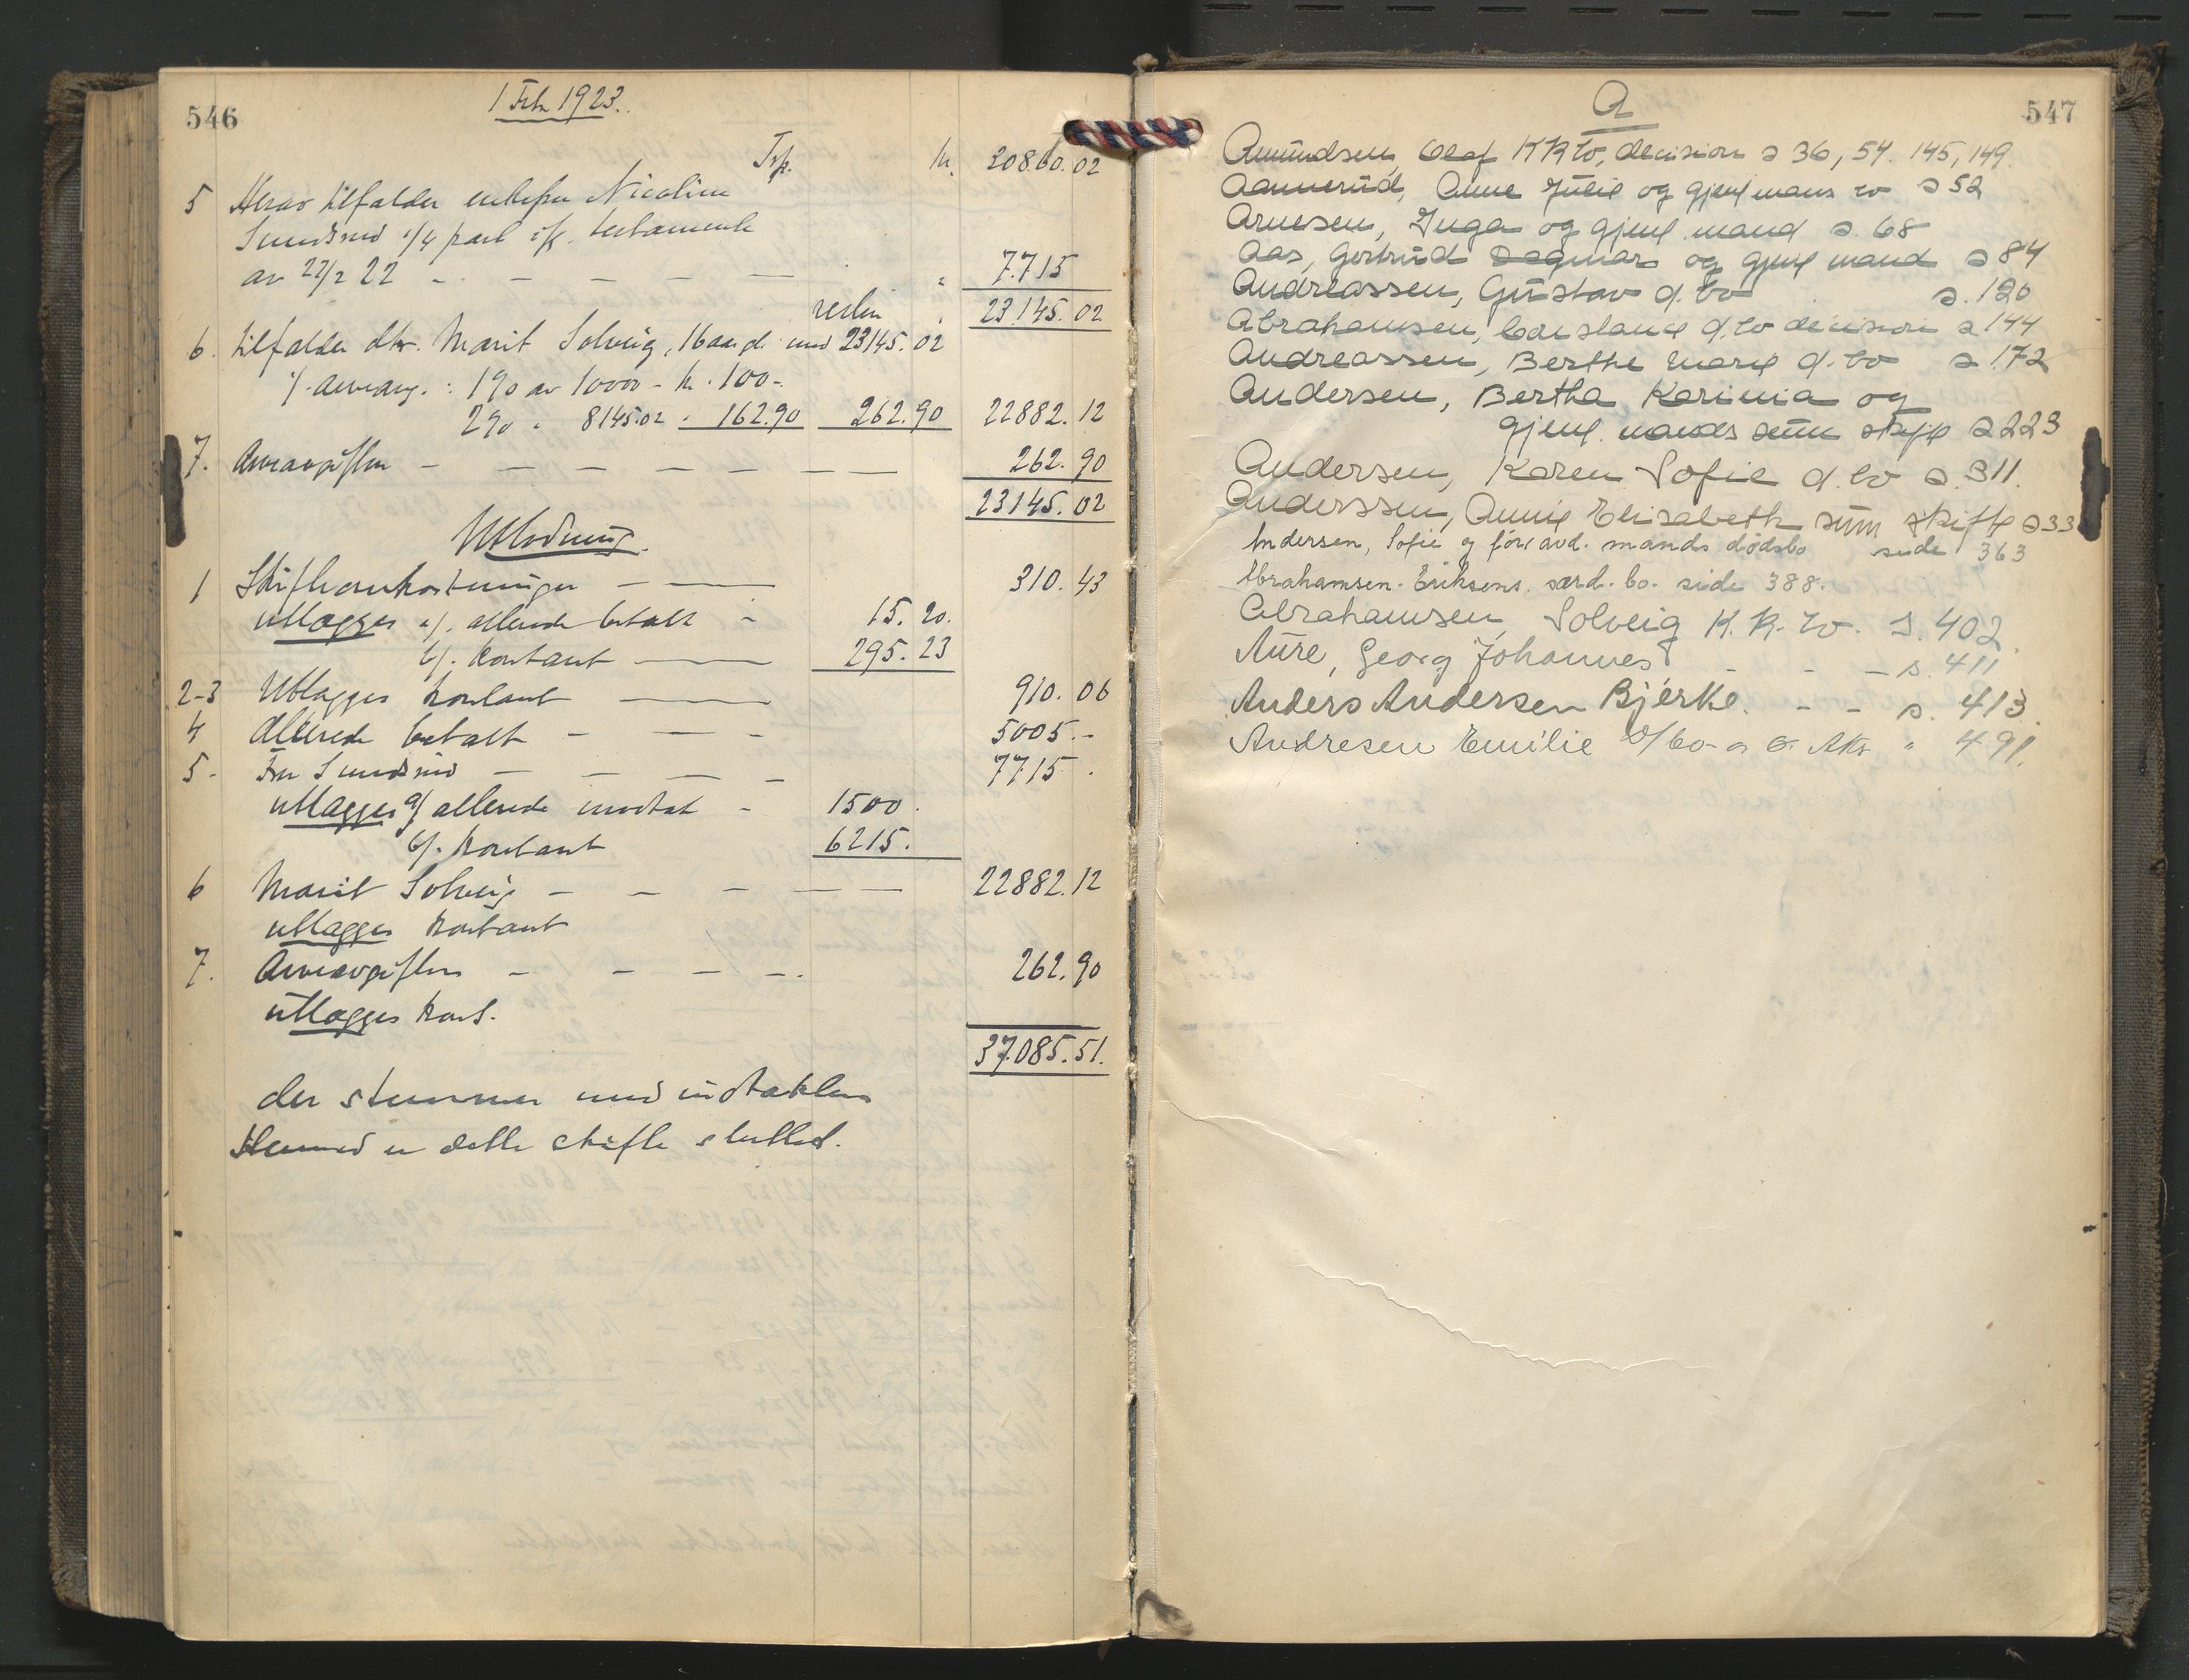 546
1 Feb 1923.
Trp. kr. 30860.02
5 Herav tilfalder enkefru Nicoline
Sundsrud 1/4 part ifl. testamente
av 22/2 22 - - - - - " 7.715
resten " 23.145.02
6. tilfalder dtr. Marit Solveig, 16 aar gl. med 23145.02
÷ arveavg.: 1% av 10000 - kr. 100-
2% " 8145.02 " 162.90 262.90 22882.12
7. Arveavgiften - - - - - - - 262.90
23145.02
Utlodning.
1 Skifteomkostninger - - 310.43
utlægges a/. allerede betalt - 15.20.
b/. kontant - 295.23
2-3 Utlægges kontant - 910.06
4 Allerede betalt - - - 5005.-
5- Fru Sundsrud - - - - 7715.
utlægges a/ allerede mottat - 1500.
b/. kontant 6215.
6 Marit Solveig - - - - - 22882.12
utlægges kontant
7. Arveavgiften - - - -. 262.90
utlægges kont.
37.085.51.
der stemmer med indtækten
Hermed er dette skifte sluttet.
A
547
Amundsen, Olaf KK bo, decision s 36, 54. 145, 149.
Aamerud, Anne Julie og gjenl mans bo s 52
Arnesen, Inga og gjenl. mand s. 68
Aas, Gertrud Dagmar og gjenl mand s 84
Andreassen, Gustav d. bo s. 120
Abrahamsen, Constance d. bo decision s 144
Andreassen, Berthe Marie d. bo s 172
Andersen, Bertha Karinia og
gjenl. mands sum skifte s 223
Andersen, Karen Sofie d. bo s. 311.
Anderssen, Annie Elisabeth sum skifte s 33
Andersen, Sofie og forv avd. mands dødsbo side 363
Abrahamsen-Eriksens. særd. bo. side 388.
Abrahamsen, Solveig K.K. bo. s. 402.
Aure, Georg Johannes - - - s. 411
Anders Andersen Bjerke. - - s. 413.
Andresen Emilie d/bo- " 491.